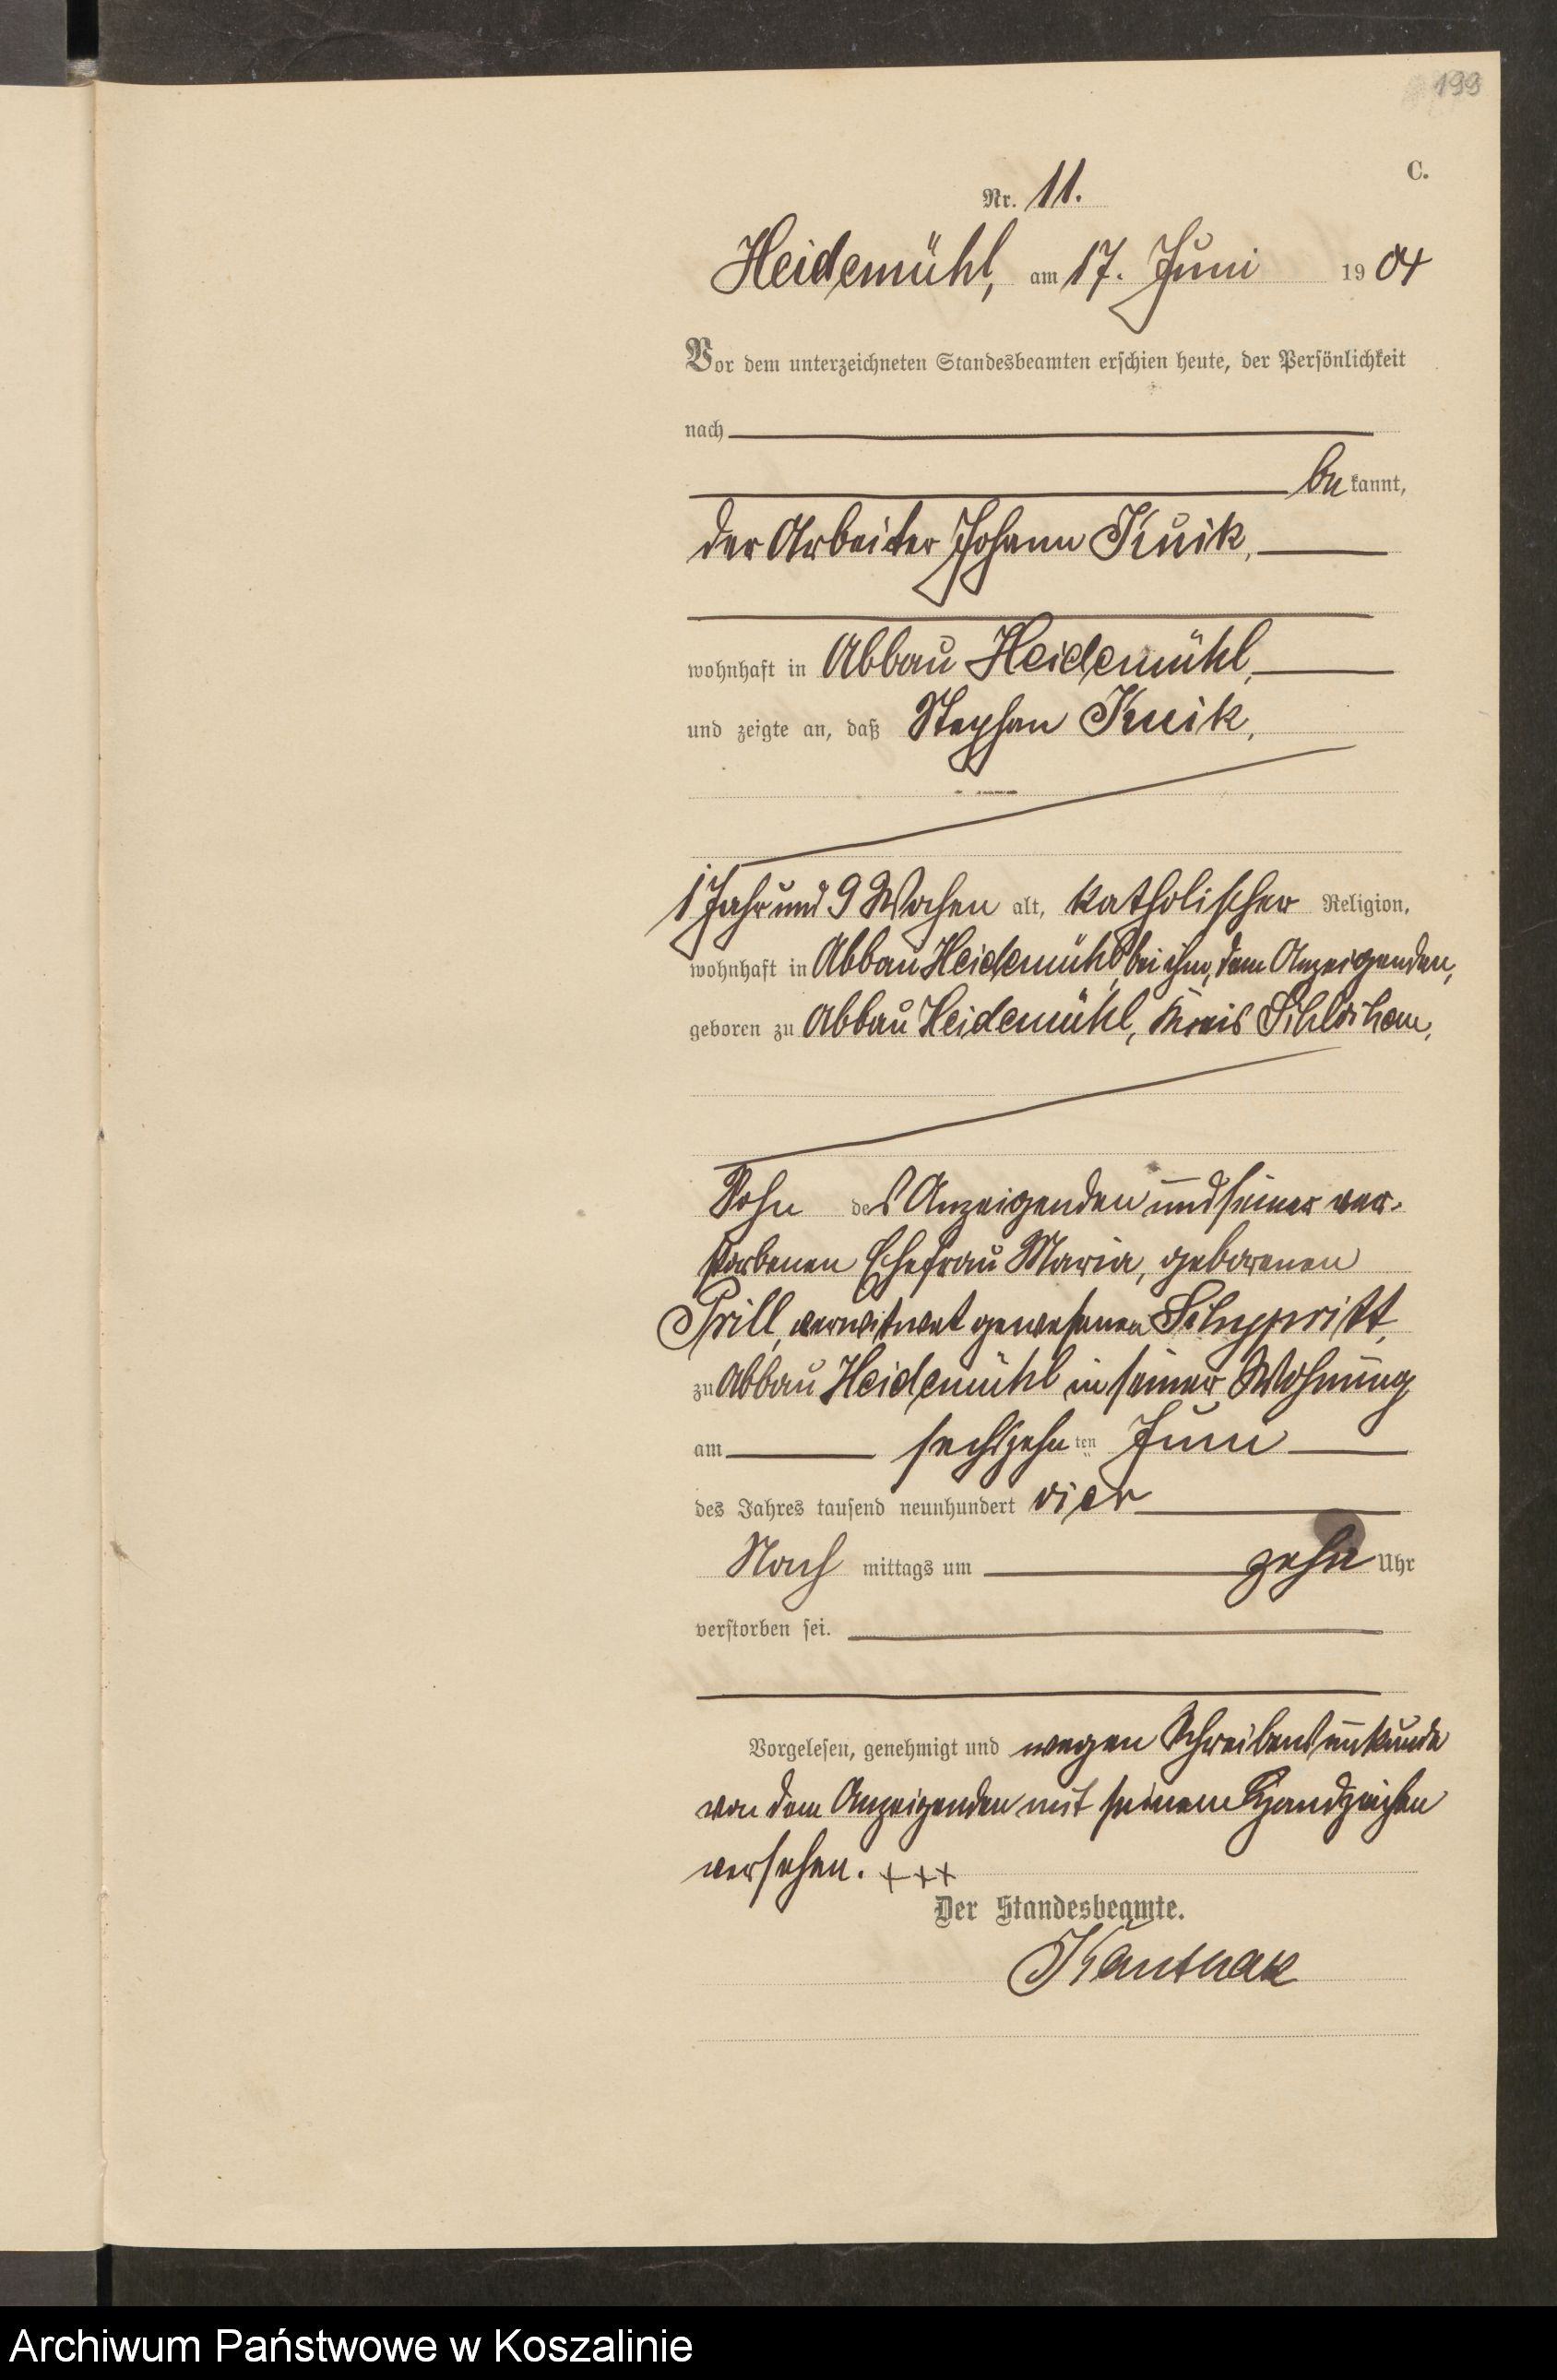 199
C.
Nr. 11.
Heidemühl, am 17. Juni 1904
Vor dem unterzeichneten Standesbeamten erschien heute, der Persönlichkeit
nach
bekannt,
der Arbeiter Johann Kuik,
wohnhaft in Abbau Heidemühl,
und zeigte an, daß Stephan Kuik,
1 Jahr und 9 Wochen alt, katholischer Religion,
wohnhaft in Abbau Heidemühl, bei ihm, dem Anzeigenden,
geboren zu Abbau Heidemühl, Kreis Schlochau,
Sohn des Anzeigenden und seiner ver-
storbenen Ehefrau Maria, geborenen
Prill, verwitwet gewesenen
zu Abbau Heidemühl in seiner Wohnung
am sechszehnten Juni
des Jahres tausend neunhundert vier
Nach mittags um zehn Uhr
verstorben sei.
Vorgelesen, genehmigt und wegen Schreibensunkunde
von dem Anzeigenden mit seinem Handzeichen
versehen. +++
Der Standesbeamte.
Archiwum Państwowe w Koszalinie